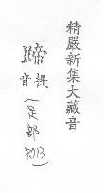 精嚴新集大藏音
蹄提音(足部